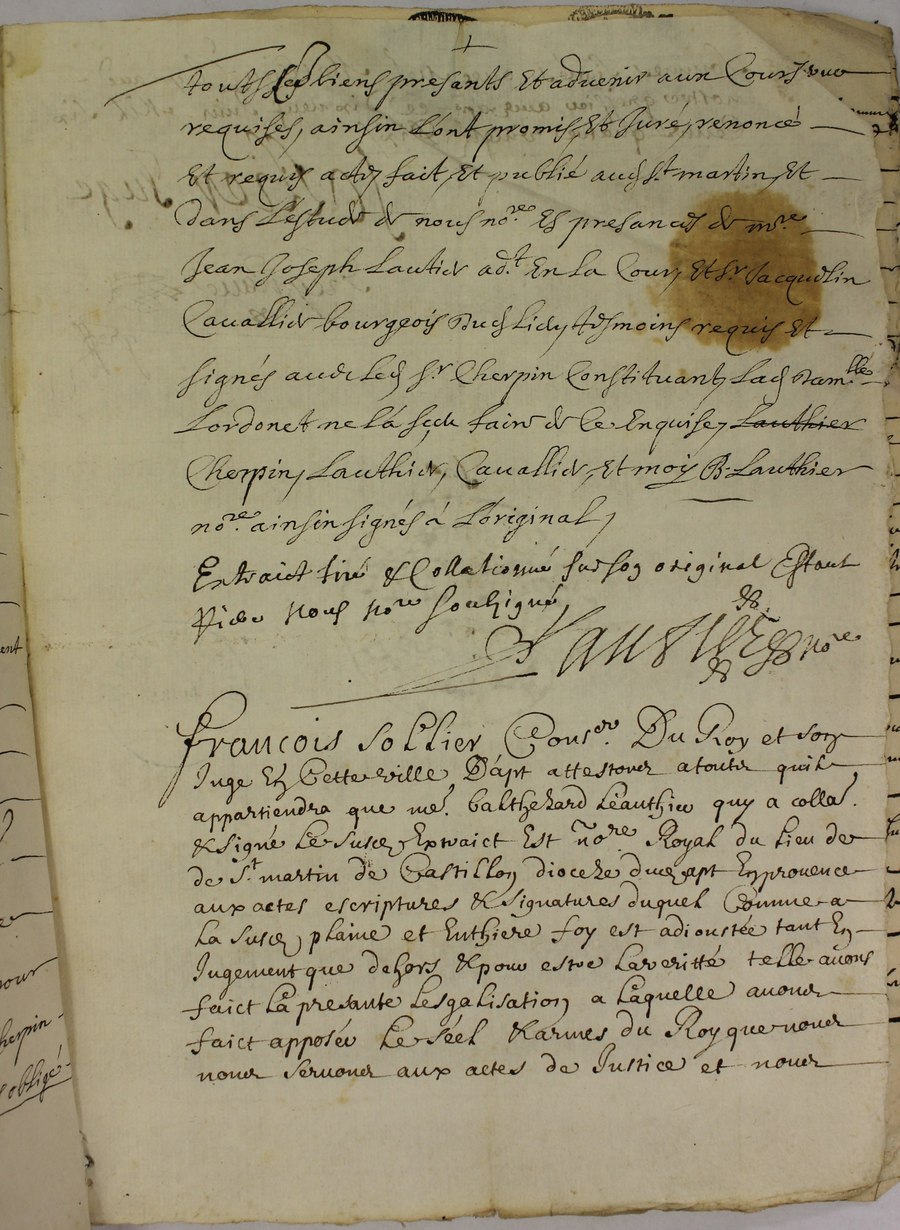 touts Ses biens presants Et advenir aux Cours
requises, ainsin L'ont promis, Et Juré, renoncé
Et requis acte, fait, Et publié aud St martin, Et
dans L'estude de nous nore Es presances de mre
Jean Joseph Lautier adt En La Cour, Et Sr Jacquelin
Cavallier bourgeois dud Lieu, tesmoins requis Et
signés avec Led Sr Cherpin Constituant, Lad damlle
Lordonet ne L'a sceu faire de Ce Enquise, Lauthier
Cherpin, Lauthier, Cavallier, Et moy B. Lauthier
nore ainsin signés á L'original,
Extraict tiré & Collationné sur son original Estant
Riere Nous Nore soubsigné,
Lautier nore
francois sollier Conser Du Roy et son
Juge En Cette ville D'apt attestons a touts quil
appartiendra que me. balthezard Leauthier quy a colla.
& signé Le susd Extraict Est nore Royal du lieu de
de St martin de Castillon dioceze dud apt En provence
aux actes escriptures & signatures duquel Comme a
La susd, plaine et Enthiere foy est adioustée tant En
Jugement que dehors & pour estre La veritté telle avons
faict La presante Lesgalisation a Laquelle avons
faict apposer Le séel & armes du Roy que nous
nous servons aux actes de Justice et nous